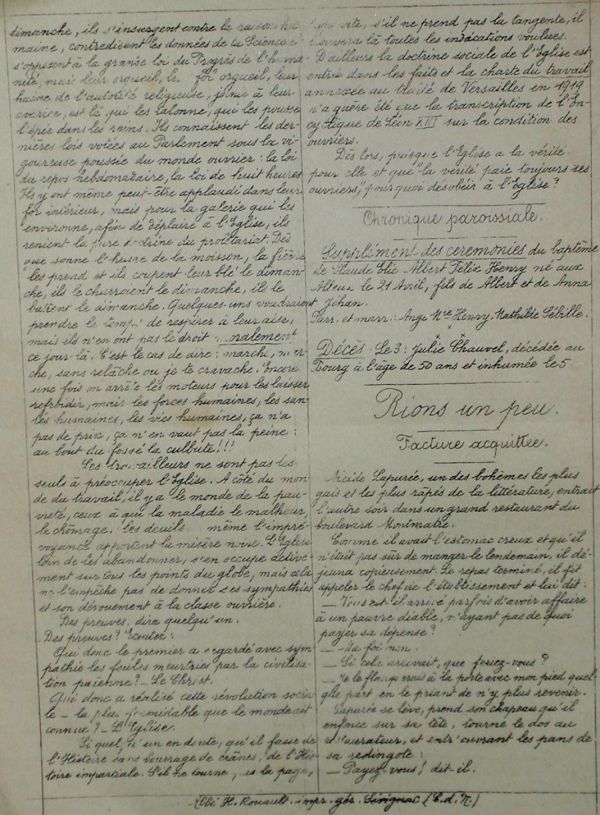 dimanche, ils s'insurgent contre la raison hu-
maine, contredisent les données de la Science et
s'opposent à la grande loi du Progrès de l'huma
nité, mais leur orgueil, le fol orgueil, leur
haine de l'autorité religieuse, jointe à leur
avarice, est là qui les talonne, qui les pousse
l'épée dans les reins. Ils connaissent les der-
nières lois votées au Parlement sous la vi-
goureuse poussée du monde ouvrier : la loi
du repos hebdomadaire, la loi de huit heures
Ils y ont même peut-être applaudi dans leur
for intérieur, mais pour la galerie qui les
environne, afin de déplaire à l'Eglise, ils
renient la pure doctrine du prolétariat. Dès
que sonne l'heure de la moisson, la fièvre
les prend et ils coupent leur blé le diman-
che, ils le charroient le dimanche, ils le
battent le dimanche. Quelques-uns voudraient
prendre le temps de respirer à leur aise,
mais ils n'en ont pas le droit moralement
ce jour là. C'est le cas de dire : marche, mar
che, sans relâche ou je te cravache. Encore
une fois on arrête les moteurs pour les laisser
refroidir, mais les forces humaines, les san-
tés humaines, les vies humaines, ça n'a
pas de prix, ça n'en vaut pas la peine :
au bout du fossé la culbute!!!
Les travailleurs ne sont pas les
seuls à préoccuper l'Eglise. A côté du mon
de du travail, il y a le monde de la pau-
vreté, ceux à qui la maladie le malheur,
le chômage. les deuils même l'impré-
voyance apportent la misère noire. L'Eglise
loin de les abandonner, s'en occupe active-
ment sur tous les points du globe, mais cela
ne l'empêche pas de donner ses sympathies
et son dévouement à la classe ouvrière.
Des preuves, dira quelqu'un.
Des preuves? Ecoutez :
Qui donc le premier a regardé avec sym-
pathie les foules meurtries par la civilisa-
tion païenne? - Le Christ.
Qui donc a réalisé cette révolution socia
le - la plus formidable que le monde ait
connue? - L'Eglise.
Si quelqu'un en doute, qu'il fasse de
l'Histoire sans bourrage de crânes, de l'His-
toire impartiale. S'il ne tourne, pas la page,
trop vite, s'il ne prend pas la tangente, il
trouvera là toutes les indications voulues.
D'ailleurs la doctrine sociale de l'Eglise est
entrée dans les faits et la charte du travail
annexée au traité de Versailles en 1919
n'a guère été que la transcription de l'En
cyclique de Léon XIII sur la condition des
ouvriers.
Dès lors, puisque l'Eglise a la vérité
pour elle et que la vérité paie toujours ses
ouvriers, pourquoi désobéir à l'Eglise?
Chronique paroissiale.
Supplément des cérémonies du baptême
de Claude Elie Albert Félix Henry né aux
Alleux le 21 Avril, fils de Albert et de Anna
Jéhan.
Parr. et marr.: Ange Mie Henry, Mathilde Sébille.
Décès. Le 3 : Julie Chauvel, décédée au
Bourg à l'âge de 50 ans et inhumée le 5.
Rions un peu.
Facture acquittée.
Alcide Lapurée, un des bohèmes les plus
gais et les plus râpés de la littérature, entrait
l'autre soir dans un grand restaurant du
boulevard Montmatre.
Comme il avait l'estomac creux et qu'il
n'était pas sûr de manger le lendemain, il dé-
jeuna copieusement. Le repas terminé, il fit
appeler le chef de l'établissement et lui dit :
- Vous est-il arrivé parfois d'avoir affaire
à un pauvre diable, n'ayant pas de quoi
payer sa dépense?
- Ma foi non.
- Si cela arrivait, que feriez-vous?
- Je le flanquerais à la porte avec mon pied quel
que part en le priant de n'y plus revenir.
Lapurée se lève, prend son chapeau qu'il
enfonce sur sa tête, tourne le dos au
restaurateur, et entr'ouvrant les pans de
sa redingote :
- Payez-vous! dit-il.
Abbé H. Rouault - impr. gér. Sévignac (C.d.N.)